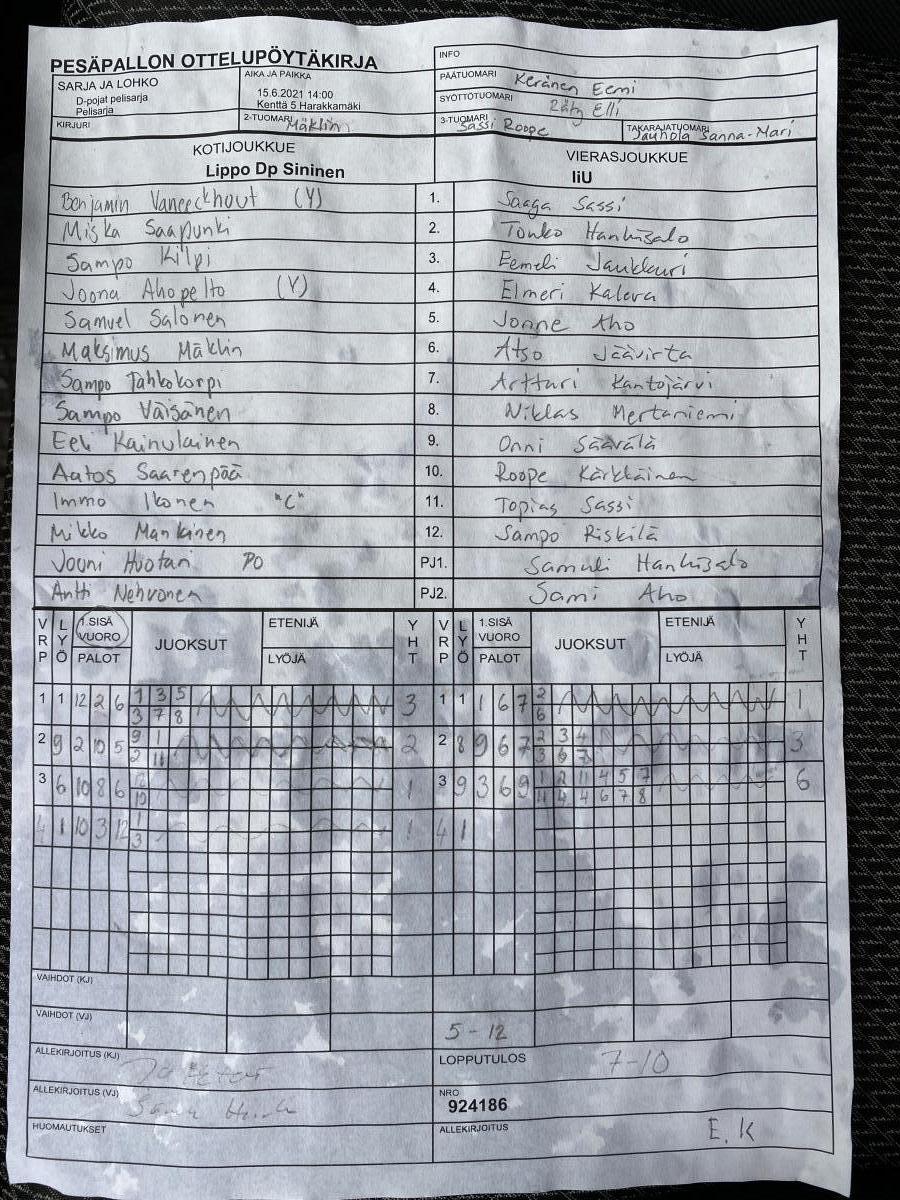 PESÄPALLON OTTELUPÖYTÄKIRJA
INFO
SARJA JA LOHKO
D-pojat pelisarja
Pelisarja
AIKA JA PAIKKA
15.6.2021 14:00
Kenttä 5 Harakkamäki
PÄÄTUOMARI Keränen Eemi
SYÖTTÖTUOMARI Räty Elli
KIRJURI
2-TUOMARI Mäklin
3-TUOMARI Sassi Roope
TAKARAJATUOMARI Jauhola Sanna-Mari
KOTIJOUKKUE
Lippo Dp Sininen
VIERASJOUKKUE
IiU
Benjamin Vaneeckhout (V) 1. Saaga Sassi
Miska Saapunki 2. Touko Hanhisalo
Sampo Kilpi 3. Eemeli Jaukkuri
Joona Ahopelto (V) 4. Elmeri Kaleva
Samuel Salonen 5. Jonne Aho
Maksimus Mäklin 6. Atso Jäävirta
Sampo Tahkokorpi 7. Artturi Kantojärvi
Sampo Väisänen 8. Niklas Mertaniemi
Eeli Kainulainen 9. Onni Säävälä
Aatos Saarenpää 10. Roope Kärkkäinen
Immo Ikonen "C" 11. Topias Sassi
Mikko Mankinen 12. Sampo Riskilä
Jouni Huotari PO PJ1. Samuli Hanhisalo
Antti Nehvonen PJ2. Sami Aho
VRP LYÖ 1.SISÄ VUORO PALOT JUOKSUT ETENIJÄ LYÖJÄ YHT VRP LYÖ 1.SISÄ VUORO PALOT JUOKSUT ETENIJÄ LYÖJÄ YHT
1 1 12 2 6 1 3 5 3 1 1 1 6 7 2 1
3 7 8 6
2 9 2 10 5 9 1 2 2 8 9 6 7 2 3 4 3
2 11 3 6 7
3 6 10 8 6 12 1 3 9 3 6 9 1 2 11 4 5 7 6
10 11 4 4 6 7 8
4 1 10 3 12 1 1 4 1
3
VAIHDOT (KJ)
VAIHDOT (VJ)
5 - 12
ALLEKIRJOITUS (KJ)
LOPPUTULOS 7-10
ALLEKIRJOITUS (VJ)
NRO
924186
HUOMAUTUKSET
ALLEKIRJOITUS E.K